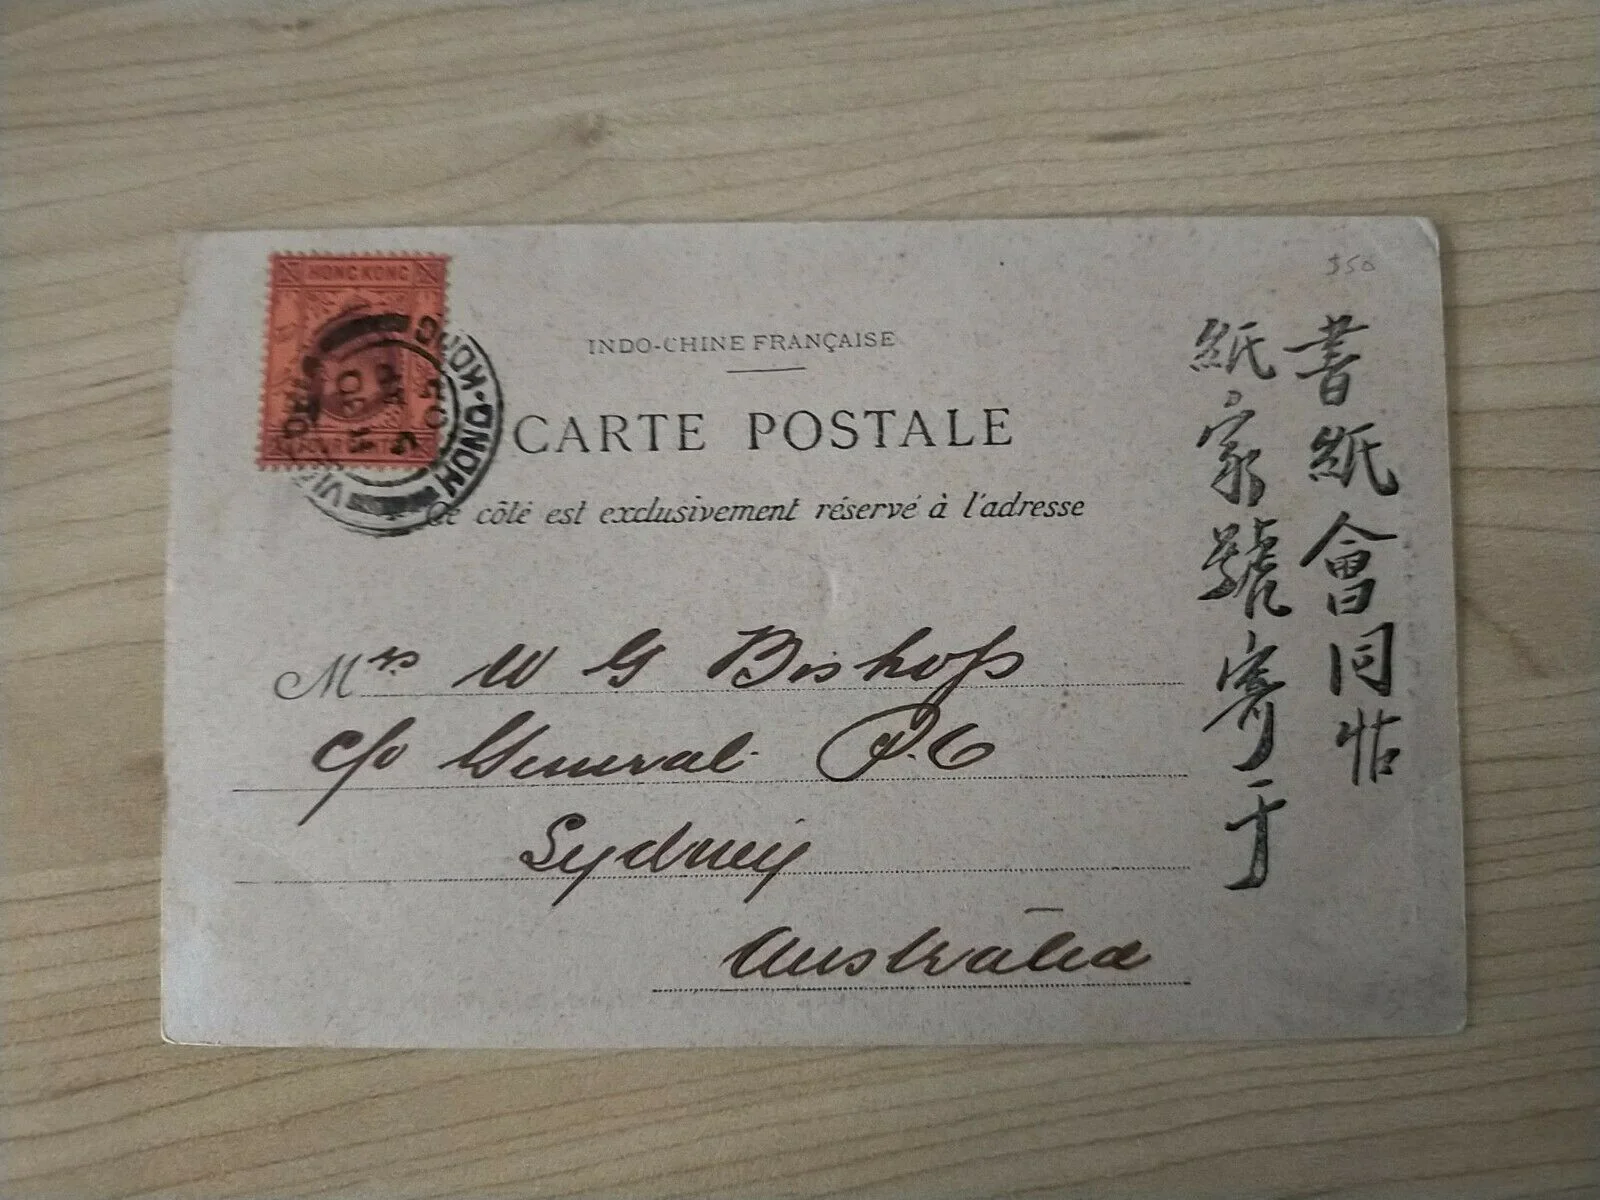 HONG KONG
HONG-KONG
VICTORIA
30 AP
05
$50
INDO-CHINE FRANÇAISE
CARTE POSTALE
Ce côté est exclusivement réservé à l'adresse
Mrs W G Bishop
c/o General P.O
Sydney
Australia
書紙會同帖
紙家號寄于